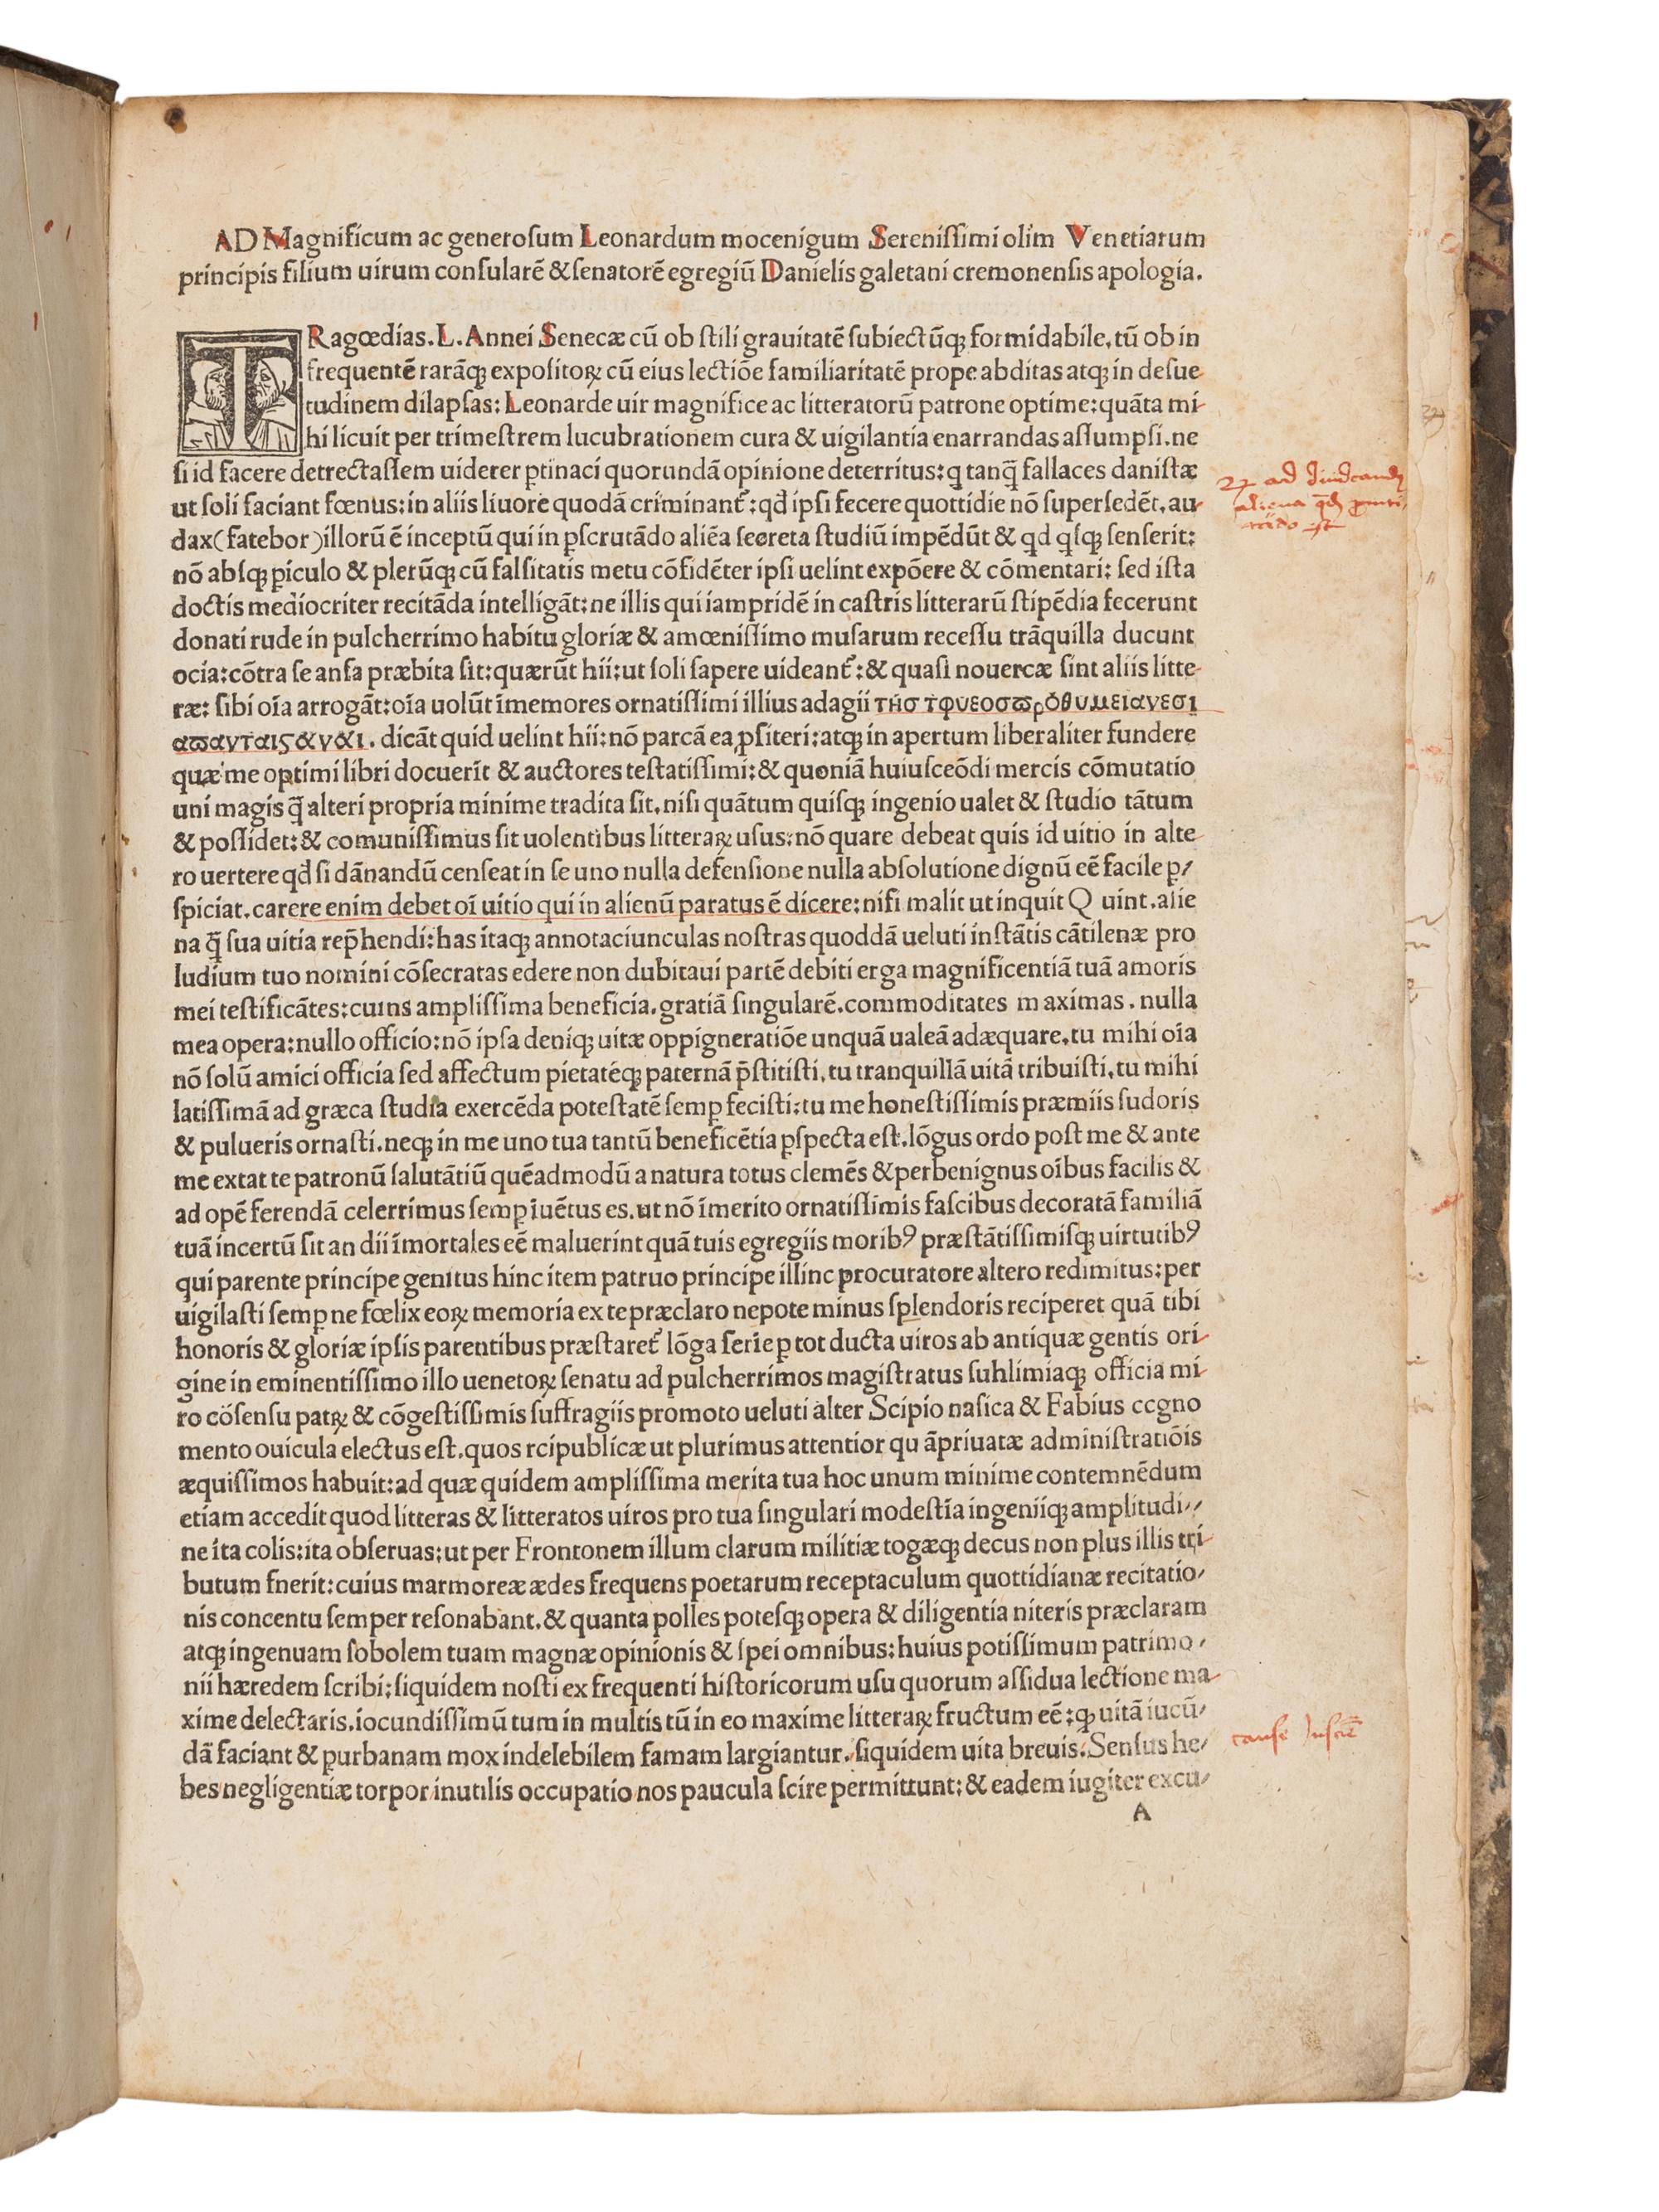 AD Magnificum ac generoſum Leonardum mocenigum Sereniſſimi olim Venetiarum
principis filium uirum conſularē & ſenatorē egregiū Danielis galetani cremonenſis apologia.
TRagœdias. L. Annei Senecæ cū ob ſtili grauitatē ſubiectūqꝫ formidabile, tū ob in
frequentē rarāqꝫ expoſitoꝝ cū eius lectiōe familiaritatē prope abditas atqꝫ in deſue-
tudinem dilapſas: Leonarde uir magnifice ac litteratorū patrone optime: quāta mi-
hi licuit per trimeſtrem lucubrationem cura & uigilantia enarrandas aſſumpſi. ne
ſi id facere detrectaſſem uiderer ꝑtinaci quorundā opinione deterritus: q tanq̄ fallaces daniſtæ
ut ſoli faciant fœnus: in aliis liuore quodā criminant᷑: qd̄ ipſi fecere quottidie nō ſuperſedēt. au-
dax (fatebor) illorū ē inceptū qui in ꝑſcrutādo aliēa ſecreta ſtudiū impēdūt & qd qſqꝫ ſenſerit:
nō abſqꝫ ꝑiculo & plerūqꝫ cū falſitatis metu cōfidēter ipſi uelint expōere & cōmentari: ſed iſta
doctis mediocriter recitāda intelligāt: ne illis qui iampridē in caſtris litterarū ſtipēdia fecerunt
donati rude in pulcherrimo habitu gloriæ & amœniſſimo muſarum receſſu trāquilla ducunt
ocia: cōtra ſe anſa præbita ſit: quærūt hii: ut ſoli ſapere uideant᷑: & quaſi nouercæ ſint aliis litte-
ræ: ſibi oīa arrogāt: oīa uolūt īmemores ornatiſſimi illius adagii τήσ τφυεοσϖρόθυμειανεσι
αϖανταιςάνάι. dicāt quid uelint hii: nō parcā ea ꝓſiteri: atqꝫ in apertum liberaliter fundere
quæ me optimi libri docuerīt & auctores teſtatiſſimi: & quoniā huiuſceōdi mercis cōmutatio
uni magis q̄ alteri propria minime tradita ſit, niſi quātum quiſqꝫ ingenio ualet & ſtudio tātum
& poſſidet: & comuniſſimus ſit uolentibus litteraꝝ uſus: nō quare debeat quis id uitio in alte-
ro uertere qd̄ ſi dānandū cenſeat in ſe uno nulla defenſione nulla abſolutione dignū eē facile ꝑ/
ſpiciat. carere enim debet oī uitio qui in alienū paratus ē dicere: niſi malit ut inquit Q uint. alie
na q̄ ſua uitia rep̄hendi: has itaqꝫ annotaciunculas noſtras quoddā ueluti inſtātis cātilenæ pro
ludium tuo nomini cōſecratas edere non dubitaui partē debiti erga magnificentiā tuā amoris
mei teſtificātes: cuius ampliſſima beneficia. gratiā ſingularē. commoditates maximas. nulla
mea opera: nullo officio: nō ipſa deniqꝫ uitæ oppigneratiōe unquā ualeā adæquare. tu mihi oīa
nō ſolū amici officia ſed affectum pietatéqꝫ paternā p̄ſtitiſti, tu tranquillā uitā tribuiſti, tu mihi
latiſſimā ad græca ſtudia exercēda poteſtatē ſemꝑ feciſti: tu me honeſtiſſimis præmiis ſudoris
& pulueris ornaſti. neqꝫ in me uno tua tantū beneficētia ꝑſpecta eſt. lōgus ordo poſt me & ante
me extat te patronū ſalutātiū quēadmodū a natura totus clemēs & perbenignus oībus facilis &
ad opē ferendā celerrimus ſemꝑ iuētus es. ut nō īmerito ornatiſſimis faſcibus decoratā familiā
tuā incertū ſit an dii īmortales eē maluerint quā tuis egregiis moribꝰ præſtātiſſimiſqꝫ uirtutibꝰ
qui parente principe genitus hinc item patruo principe illinc procuratore altero redimitus: per
uigilaſti ſemꝑ ne fœlix eoꝝ memoria ex te præclaro nepote minus ſplendoris reciperet quā tibi
honoris & gloriæ ipſis parentibus præſtaret᷑ lōga ſerie ꝑ tot ducta uiros ab antiquæ gentis ori-
gine in eminentiſſimo illo uenetoꝝ ſenatu ad pulcherrimos magiſtratus ſuhlimiaqꝫ officia mi-
ro cōſenſu patꝝ & cōgeſtiſſimis ſuffragiis promoto ueluti alter Scipio naſica & Fabius ccgno
mento ouicula electus eſt. quos rcipublicæ ut plurimus attentior qu āpriuatæ adminiſtratiōis
æquiſſimos habuit: ad quæ quidem ampliſſima merita tua hoc unum minime contemnēdum
etiam accedit quod litteras & litteratos uiros pro tua ſingulari modeſtia ingeniiqꝫ amplitudi//
ne ita colis: ita obſeruas: ut per Frontonem illum clarum militiæ togæqꝫ decus non plus illis tri-
butum fnerit: cuius marmoreæ ædes frequens poetarum receptaculum quottidianæ recitatio/
nis concentu ſemper reſonabant. & quanta polles poteſqꝫ opera & diligentia niteris præclaram
atqꝫ ingenuam ſobolem tuam magnæ opinionis & ſpei omnibus: huius potiſſimum patrimo/
nii hæredem ſcribi: ſiquidem noſti ex frequenti hiſtoricorum uſu quorum aſſidua lectione ma-
xime delectaris. iocundiſſimū tum in multis tū in eo maxime litteraꝝ fructum eē: qꝫ uitā iucū/
dā faciant & ꝑurbanam mox indelebilem famam largiantur. ſiquidem uita breuis: Senſus he/
bes negligentiæ torpor inutilis occupatio nos paucula ſcire permittunt: & eadem iugiter excu/
A
ad
aliena
cauſe Inſciē